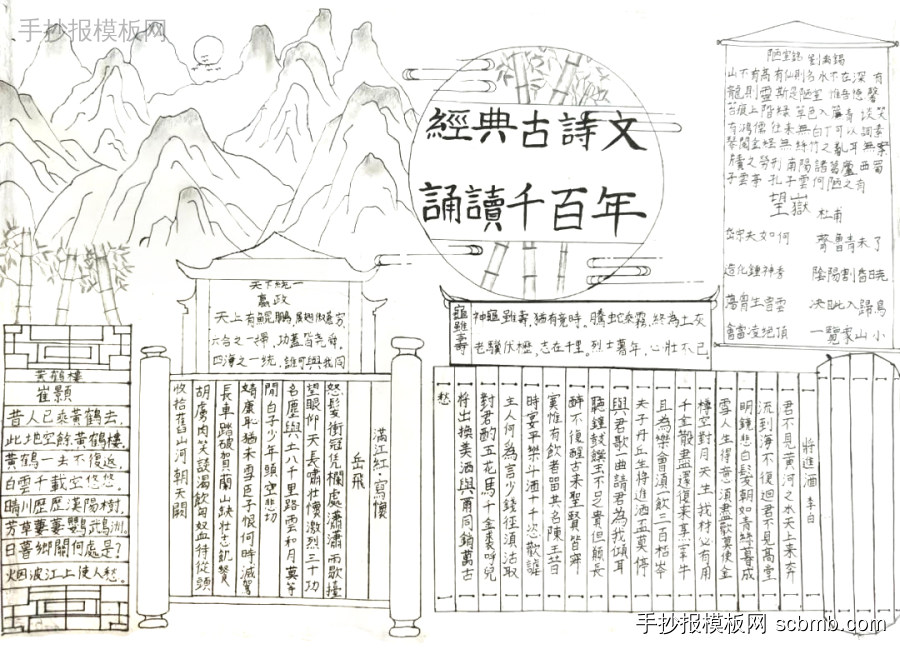 手抄报模板网
經典古詩文
誦讀千百年
陋室銘 劉禹錫
山不有高有仙則名水不在深 有
龍則靈斯是陋室 惟吾德馨
苔痕上階綠 草色入簾青 談笑
有鴻儒 往來無白丁可以調素
琴閱金經無絲竹之亂耳無案
牘之勞形南陽諸葛廬西蜀
子雲亭 孔子雲何陋之有
望嶽 杜甫
岱宗夫如何 齊魯青未了
造化鍾神秀 陰陽割昏曉
蕩胸生曾雲 決眦入歸鳥
會當凌絕頂 一覽衆山小
天下統一
嬴政
天上有鯤鵬,展翅傲蒼穹。
六合之一掃,功蓋皆先舜。
四海之一統,誰可與我同
龜雖壽
神龜雖壽,猶有竟時。騰蛇乘霧,終為土灰
老驥伏櫪,志在千里。烈士暮年,心壯不已。
黃鶴樓
崔顥
昔人已乘黃鶴去,
此地空餘黃鶴樓。
黃鶴一去不復返,
白雲千載空悠悠。
晴川歷歷漢陽樹,
芳草萋萋鸚鵡洲。
日暮鄉關何處是?
烟波江上使人愁。
滿江紅·寫懷
岳飛
怒髮衝冠凭欄處瀟瀟雨歇擡
望眼仰天長嘯壯懷激烈三十功
名塵與土八千里路雲和月莫等
閒白了少年頭空悲切
靖康恥猶未雪臣子恨何時滅駕
長車踏破賀蘭山缺壯志飢餐
胡虜肉笑談渴飲匈奴血待從頭
收拾舊山河朝天闕
將進酒 李白
君不見黃河之水天上來奔
流到海不復迴君不見高堂
明鏡悲白髮朝如青絲暮成
雪人生得意須盡歡莫使金
樽空對月天生我材必有用
千金散盡還復來烹羊牛
且為樂會須一飲三百杯岑
夫子丹丘生將進酒杯莫停
與君歌一曲請君為我傾耳
聽鐘鼓饌玉不足貴但願長
醉不復醒古來聖賢皆寂
寞惟有飲者留其名陳王昔
時宴平樂斗酒十千恣歡謔
主人何為言少錢徑須沽取
對君酌五花馬千金裘呼兒
將出換美酒與爾同銷萬古
愁
手抄报模板网 scbmb.com